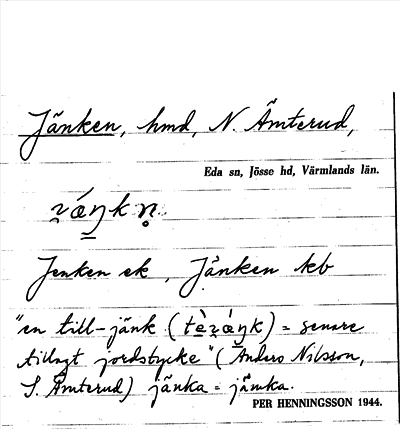 Jänken, hmd, N. Ämterud,
Eda sn, Jösse hd, Värmlands län.
Jenken ek, Jänken kb
"en till-jänk ( ) = senare
tillagt jordstycke" (Anders Nilsson,
S. Ämterud) jänka = jämka.
PER HENNINGSSON 1944.